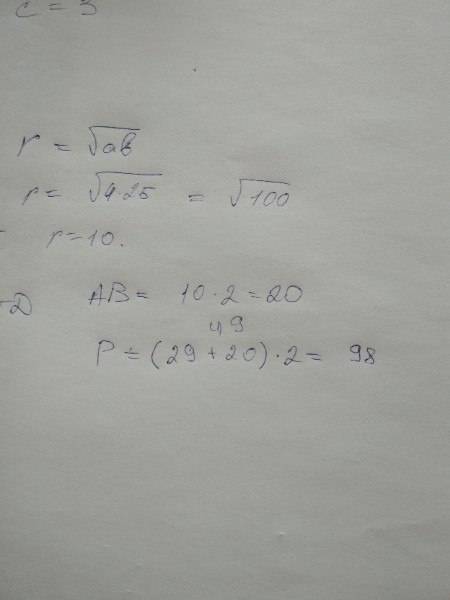 c = 3
r = √ab
r = √4·25 = √100
r = 10.
D AB = 10·2 = 20
49
P = (29 + 20)·2 = 98